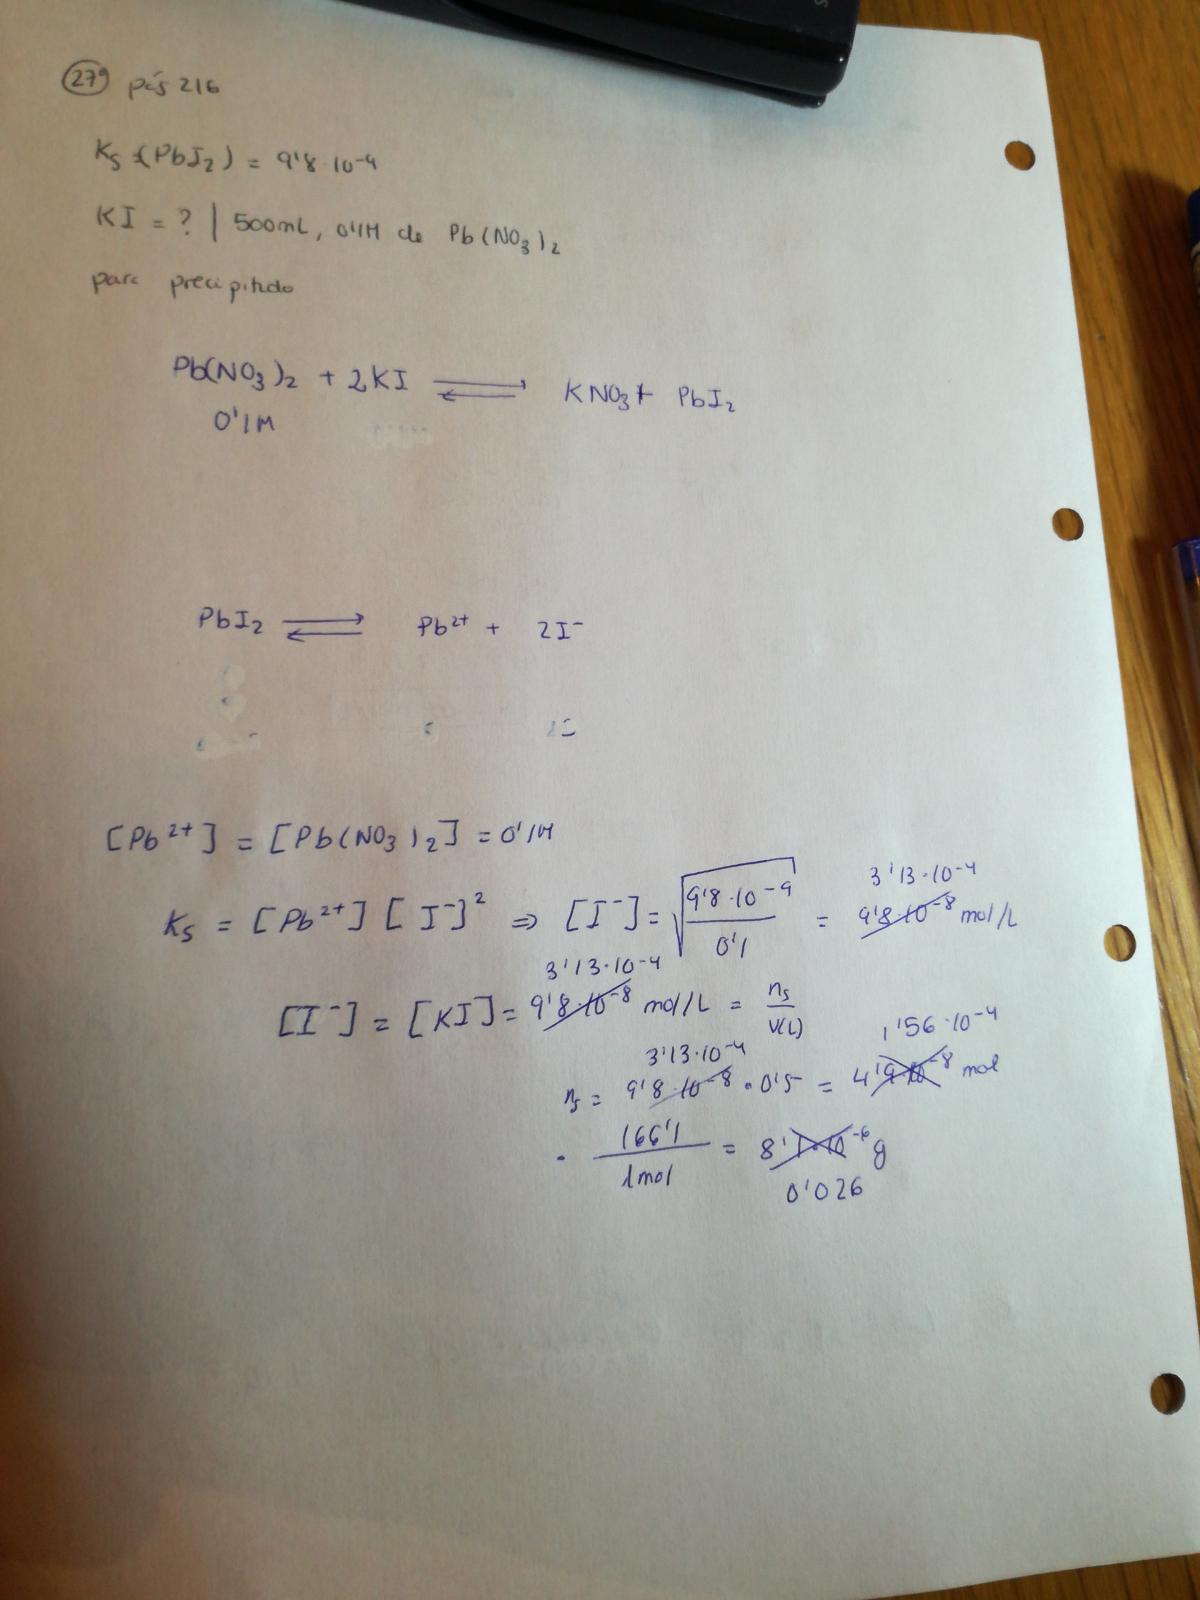 27a pág 216
Ks (PbI2) = 9'8·10-9
KI = ? | 500mL, 0'1M de Pb(NO3)2
para precipitado
Pb(NO3)2 + 2KI ⇌ KNO3 + PbI2
0'1M
PbI2 ⇌ Pb2+ + 2I-
[Pb2+] = [Pb(NO3)2] = 0'1M
3'13·10-4
Ks = [Pb2+] [I-]2 ⇒ [I-] = √(9'8·10-9 / 0'1) = 9'8·10-8 mol/L
3'13·10-4
[I-] = [KI] = 9'8·10-8 mol/L = ns / V(L)
3'13·10-4 1'56·10-4
ns = 9'8·10-8 · 0'5 = 4'9·10-8 mol
· 166'1 / 1mol = 8'1·10-6 g
0'026